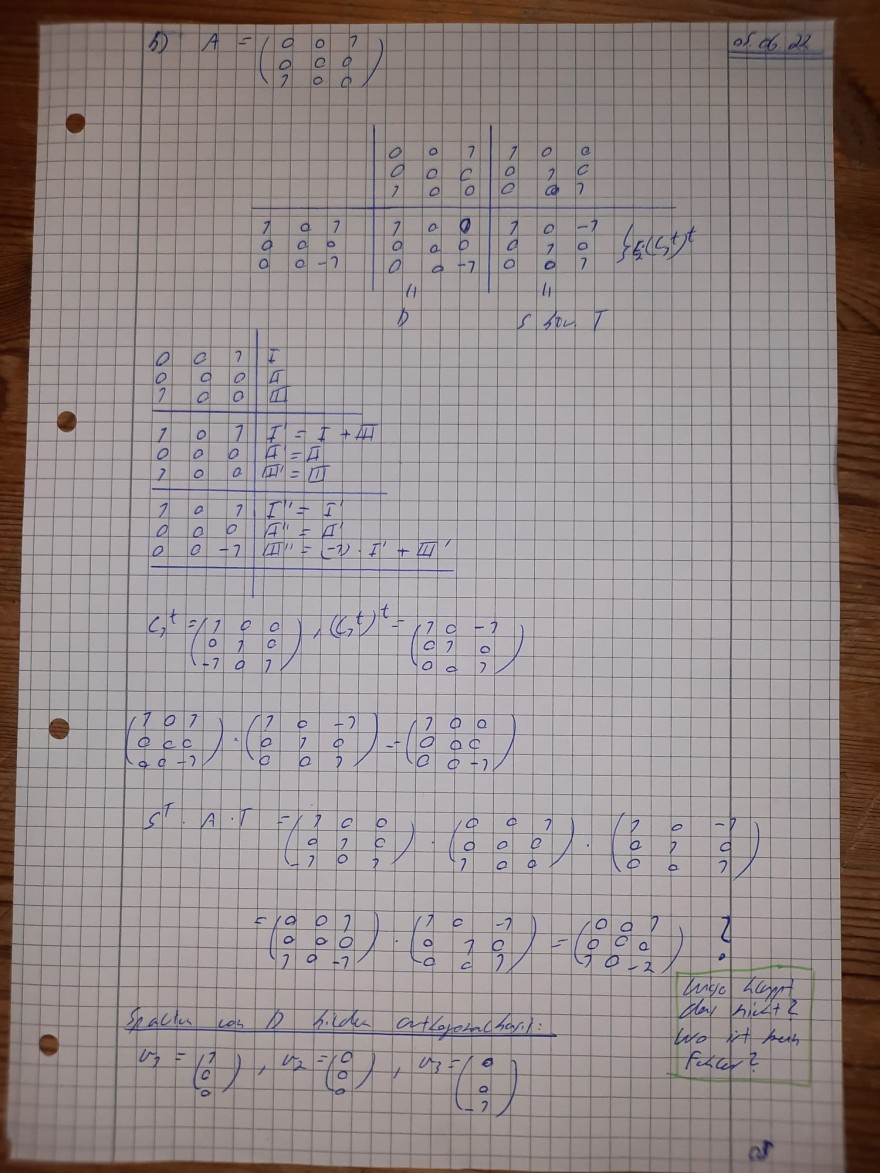 b) A = ( 0 0 1 05.06.22
0 0 0
1 0 0 )
0 0 1 | 1 0 0
0 0 0 | 0 1 0
1 0 0 | 0 0 1
1 0 1 | 1 0 0 | 1 0 -1
0 0 0 | 0 0 0 | 0 1 0 } (C₁ᵗ)ᵗ
0 0 -1 | 0 0 -1 | 0 0 1
= =
D S bzw. T
0 0 1 | I
0 0 0 | II
1 0 0 | III
1 0 1 | I' = I + III
0 0 0 | II' = II
1 0 0 | III' = III
1 0 1 | I'' = I'
0 0 0 | II'' = II'
0 0 -1 | III'' = (-1) · I' + III'
C₁ᵗ = ( 1 0 0 ) , (C₁ᵗ)ᵗ = ( 1 0 -1 )
( 0 1 0 ) ( 0 1 0 )
( -1 0 1 ) ( 0 0 1 )
( 1 0 1 ) · ( 1 0 -1 ) = ( 1 0 0 )
( 0 0 0 ) ( 0 1 0 ) ( 0 0 0 )
( 0 0 -1 ) ( 0 0 1 ) ( 0 0 -1 )
Sᵀ · A · T = ( 1 0 0 ) · ( 0 0 1 ) · ( 1 0 -1 )
( 0 1 0 ) ( 0 0 0 ) ( 0 1 0 )
( -1 0 1 ) ( 1 0 0 ) ( 0 0 1 )
= ( 0 0 1 ) · ( 1 0 -1 ) = ( 0 0 1 ) ?
( 0 0 0 ) ( 0 1 0 ) ( 0 0 0 )
( 1 0 -1 ) ( 0 0 1 ) ( 1 0 -2 )
Wieso klappt
das nicht?
Wo ist mein
Fehler?
Spalten von D bilden Orthogonalbasis:
v₁ = ( 1 ) , v₂ = ( 0 ) , v₃ = ( 0 )
( 0 ) ( 0 ) ( 0 )
( 0 ) ( 0 ) ( -1 )